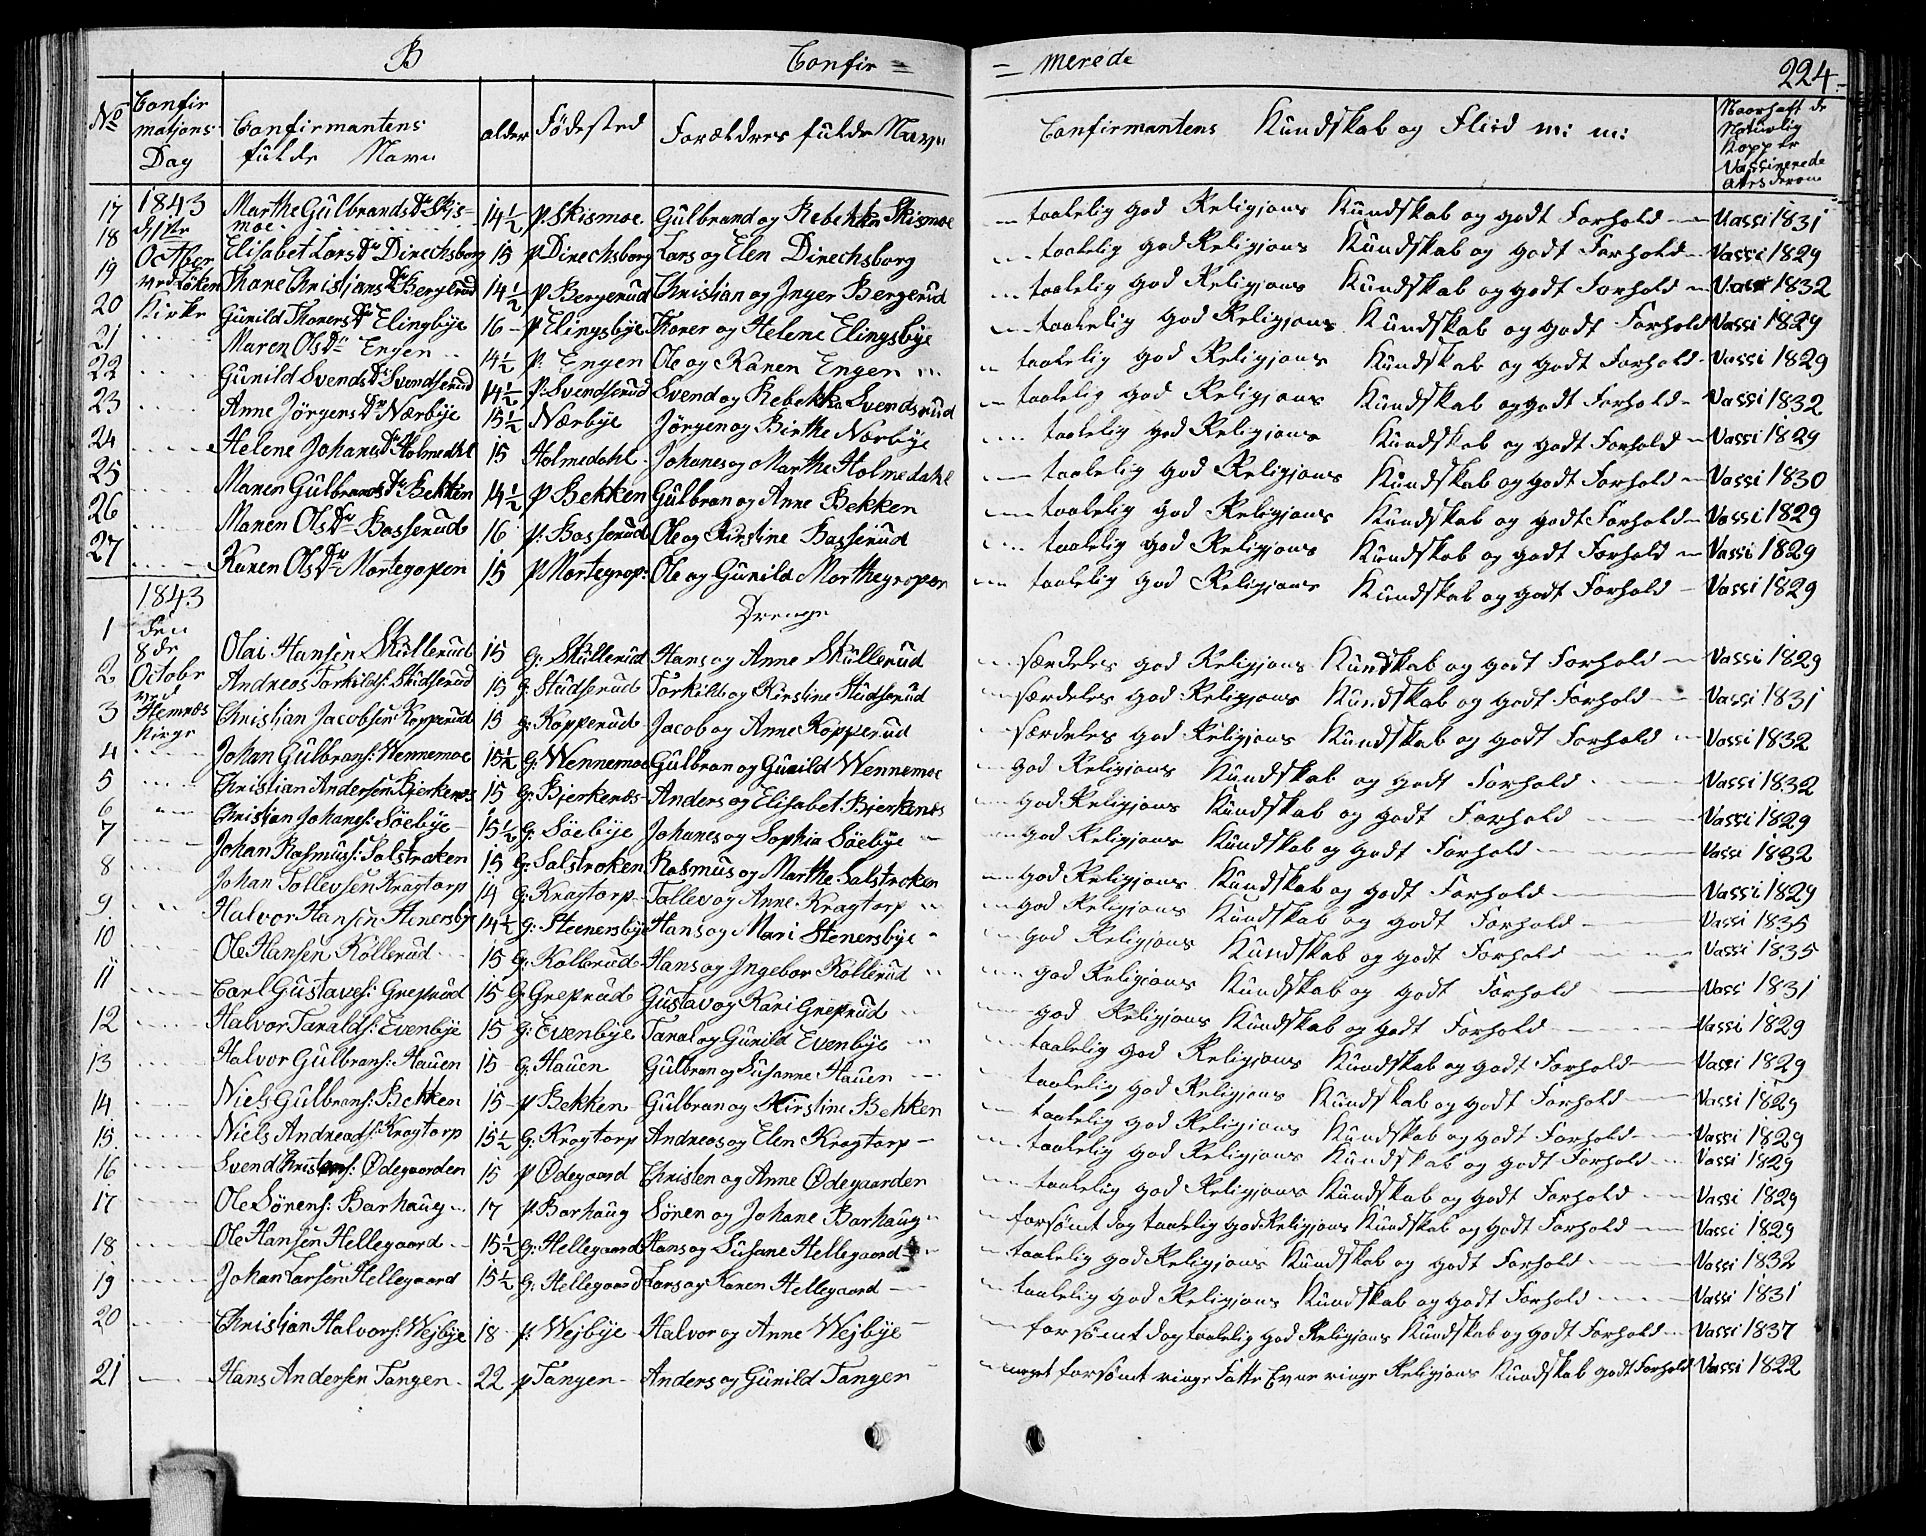 B Confir = = merede 224.
No Confir matjons Dag Confirmantens fulde Navn alder Fødested Forældres fulde Navn Confirmantens Kundskab og Fliid m: m:
17 1843 Marthe Gulbrands Dr Skis= moe 14½ p. Skismoe Gulbrand og Rebekka Skismoe taalelig god Religjons Kundskab og godt Forhold Vassi 1831
18 October Elisabet Lars Dr Direchsborg 15 p Direchsborg Lars og Elen Direchsborg taalelig god Religjons Kundskab og godt Forhold Vassi 1829
19 ved Løken Thane Christjans Dr Bergerud 14½ p Bergerud Christian og Inger Bergerud taalelig god Religjons Kundskab og godt Forhold Vassi 1832
20 Kirke Gunild Thorers Dr Elingbye 16 p Elingsbye Thorer og Helene Elingsbye taalelig god Religjons Kundskab og godt Forhold Vassi 1829
21 Maren Ols Dr Engen 14½ p. Engen Ole og Karen Engen taalelig god Religjons Kundskab og godt Forhold Vassi 1829
22 Gunild Svends Dr Svendserud 14½ p: Svendserud Svend og Rebekka Svendsrud taalelig god Religjons Kundskab og godt Forhold Vassi 1832
23 Anne Jörgens Dr Nærbye 15½ Nærbye Jörgen og Birthe Nærbye taalelig god Religjons Kundskab og godt Forhold Vassi 1829
24 Helene Johanes Dr Holmedahl 15 Holmedahl Johanes og Marthe Holmedahl taalelig god Religjons Kundskab og godt Forhold Vassi 1830
25 Maren Gulbrands Dr Bekken 14½ p Bekken Gulbran og Anne Bekken taalelig god Religjons Kundskab og godt Forhold Vassi 1829
26 Maren Ols Dr Basserud 16 p: Basserud Ole og Kirstine Basserud taalelig god Religjons Kundskab og godt Forhold Vassi 1829
27 Karen Ols Dr Mortegopen 15 p Mortegrop: Ole og Gunild Morthegropen taalelig god Religjons Kundskab og godt Forhold Vassi 1829
1843 Drenge
1 den 8de Olai Hansen Skullerud 15 G: Skullerud Hans og Anne Skullerud særdeles god Religjons Kundskab og godt Forhold Vassi 1829
2 Octobr Andreas Torkilds: Studserud 15 G: Studserud Torkild og Kirstine Studserud særdeles god Religjons Kundskab og godt Forhold Vassi 1831
3 ved Hemnes Christian Jacobsen Kopperud 15 g: Kopperud Jacob og Anne Kopperud særdeles god Religjons Kundskab og godt Forhold Vassi 1832
4 Kirge Johan Gulbrans: Wennemoe 15½ G: Wennemoe Gulbran og Gunild Wennemoe god Religjons Kundskab og godt Forhold Vassi 1832
5 Christian Andersen Bjerkenes 15 G: Bjerkenes Anders og Elisabet Bjerkenes god Religjons Kundskab og godt Forhold Vassi 1829
6 Christian Johanes: Söebye 15½ G: Söebye Johanes og Sophia Söebye god Religjons Kundskab og godt Forhold Vassi 1832
7 Johan Rasmus: Salstroken 15 G: Salstroken Rasmus og Marthe Salstroken god Religjons Kundskab og godt Forhold Vassi 1829
8 Johan Tollevsen Kragtorp 14 G: Kragtorp Tollev og Anne Kragtorp god Religjons Kundskab og godt Forhold Vassi 1835
9 Halvor Hansen Stenersbye 14½ G: Steenersbye Hans og Mari Stenersbye god Religjons Kundskab og godt Forhold Vassi 1835
10 Ole Hansen Kollerud 15 G: Kollerud Hans og Ingebor Kollerud god Religjons Kundskab og godt Forhold Vassi 1831
11 Carl Gustaves: Greprud 15 G: Greprud Gustav og Kari Greprud god Religjons Kundskab og godt Forhold Vassi 1829
12 Halvor Taralds: Evenbye 15 G: Evenbye Taral og Gunild Evenbye taalelig god Religjons Kundskab og godt Forhold Vassi 1829
13 Halvor Gulbrans: Hauen 15 G: Hauen Gulbran og Susanne Hauen taalelig god Religjons Kundskab og godt Forhold Vassi 1829
14 Niels Gulbrans: Bekken 15 p Bekken Gulbran og Kirstine Bekken taalelig god Religjons Kundskab og godt Forhold Vassi 1829
15 Niels Andreas: Kragtorp 15½ G: Kragtorp Andreas og Elen Kragtorp taalelig god Religjons Kundskab og godt Forhold Vassi 1829
16 Svend Christens: Ödegaarden 15 p Ödegaard Christen og Anne Ödegaarden taalelig god Religjons Kundskab og godt Forhold Vassi 1829
17 Ole Sörens: Barhaug 17 p Barhaug Sören og Johane Barhaug forsömt dog taalelig god Religjons Kundskab og godt Forhold Vassi 1829
18 Ole Hansen Hellegaard 15½ G: Hellegaard Hans og Susane Hellegaard taalelig god Religjons Kundskab og godt Forhold Vassi 1832
19 Johan Larsen Hellegaard 15½ G: Hellegaard Lars og Karen Hellegaard taalelig god Religjons Kundskab og godt Forhold Vassi 1831
20 Christian Halvors: Wejbye 18 p: Wejbye Halvor og Anne Wejbye forsömt dog taalelig god Religjons Kundskab og godt Forhold Vassi 1837
21 Hans Andersen Tangen 22 p Tangen Anders og Gunild Tangen meget forsömt ringe Fatte Evne ringe Religjons Kundskab godt Forhold Vassi 1822